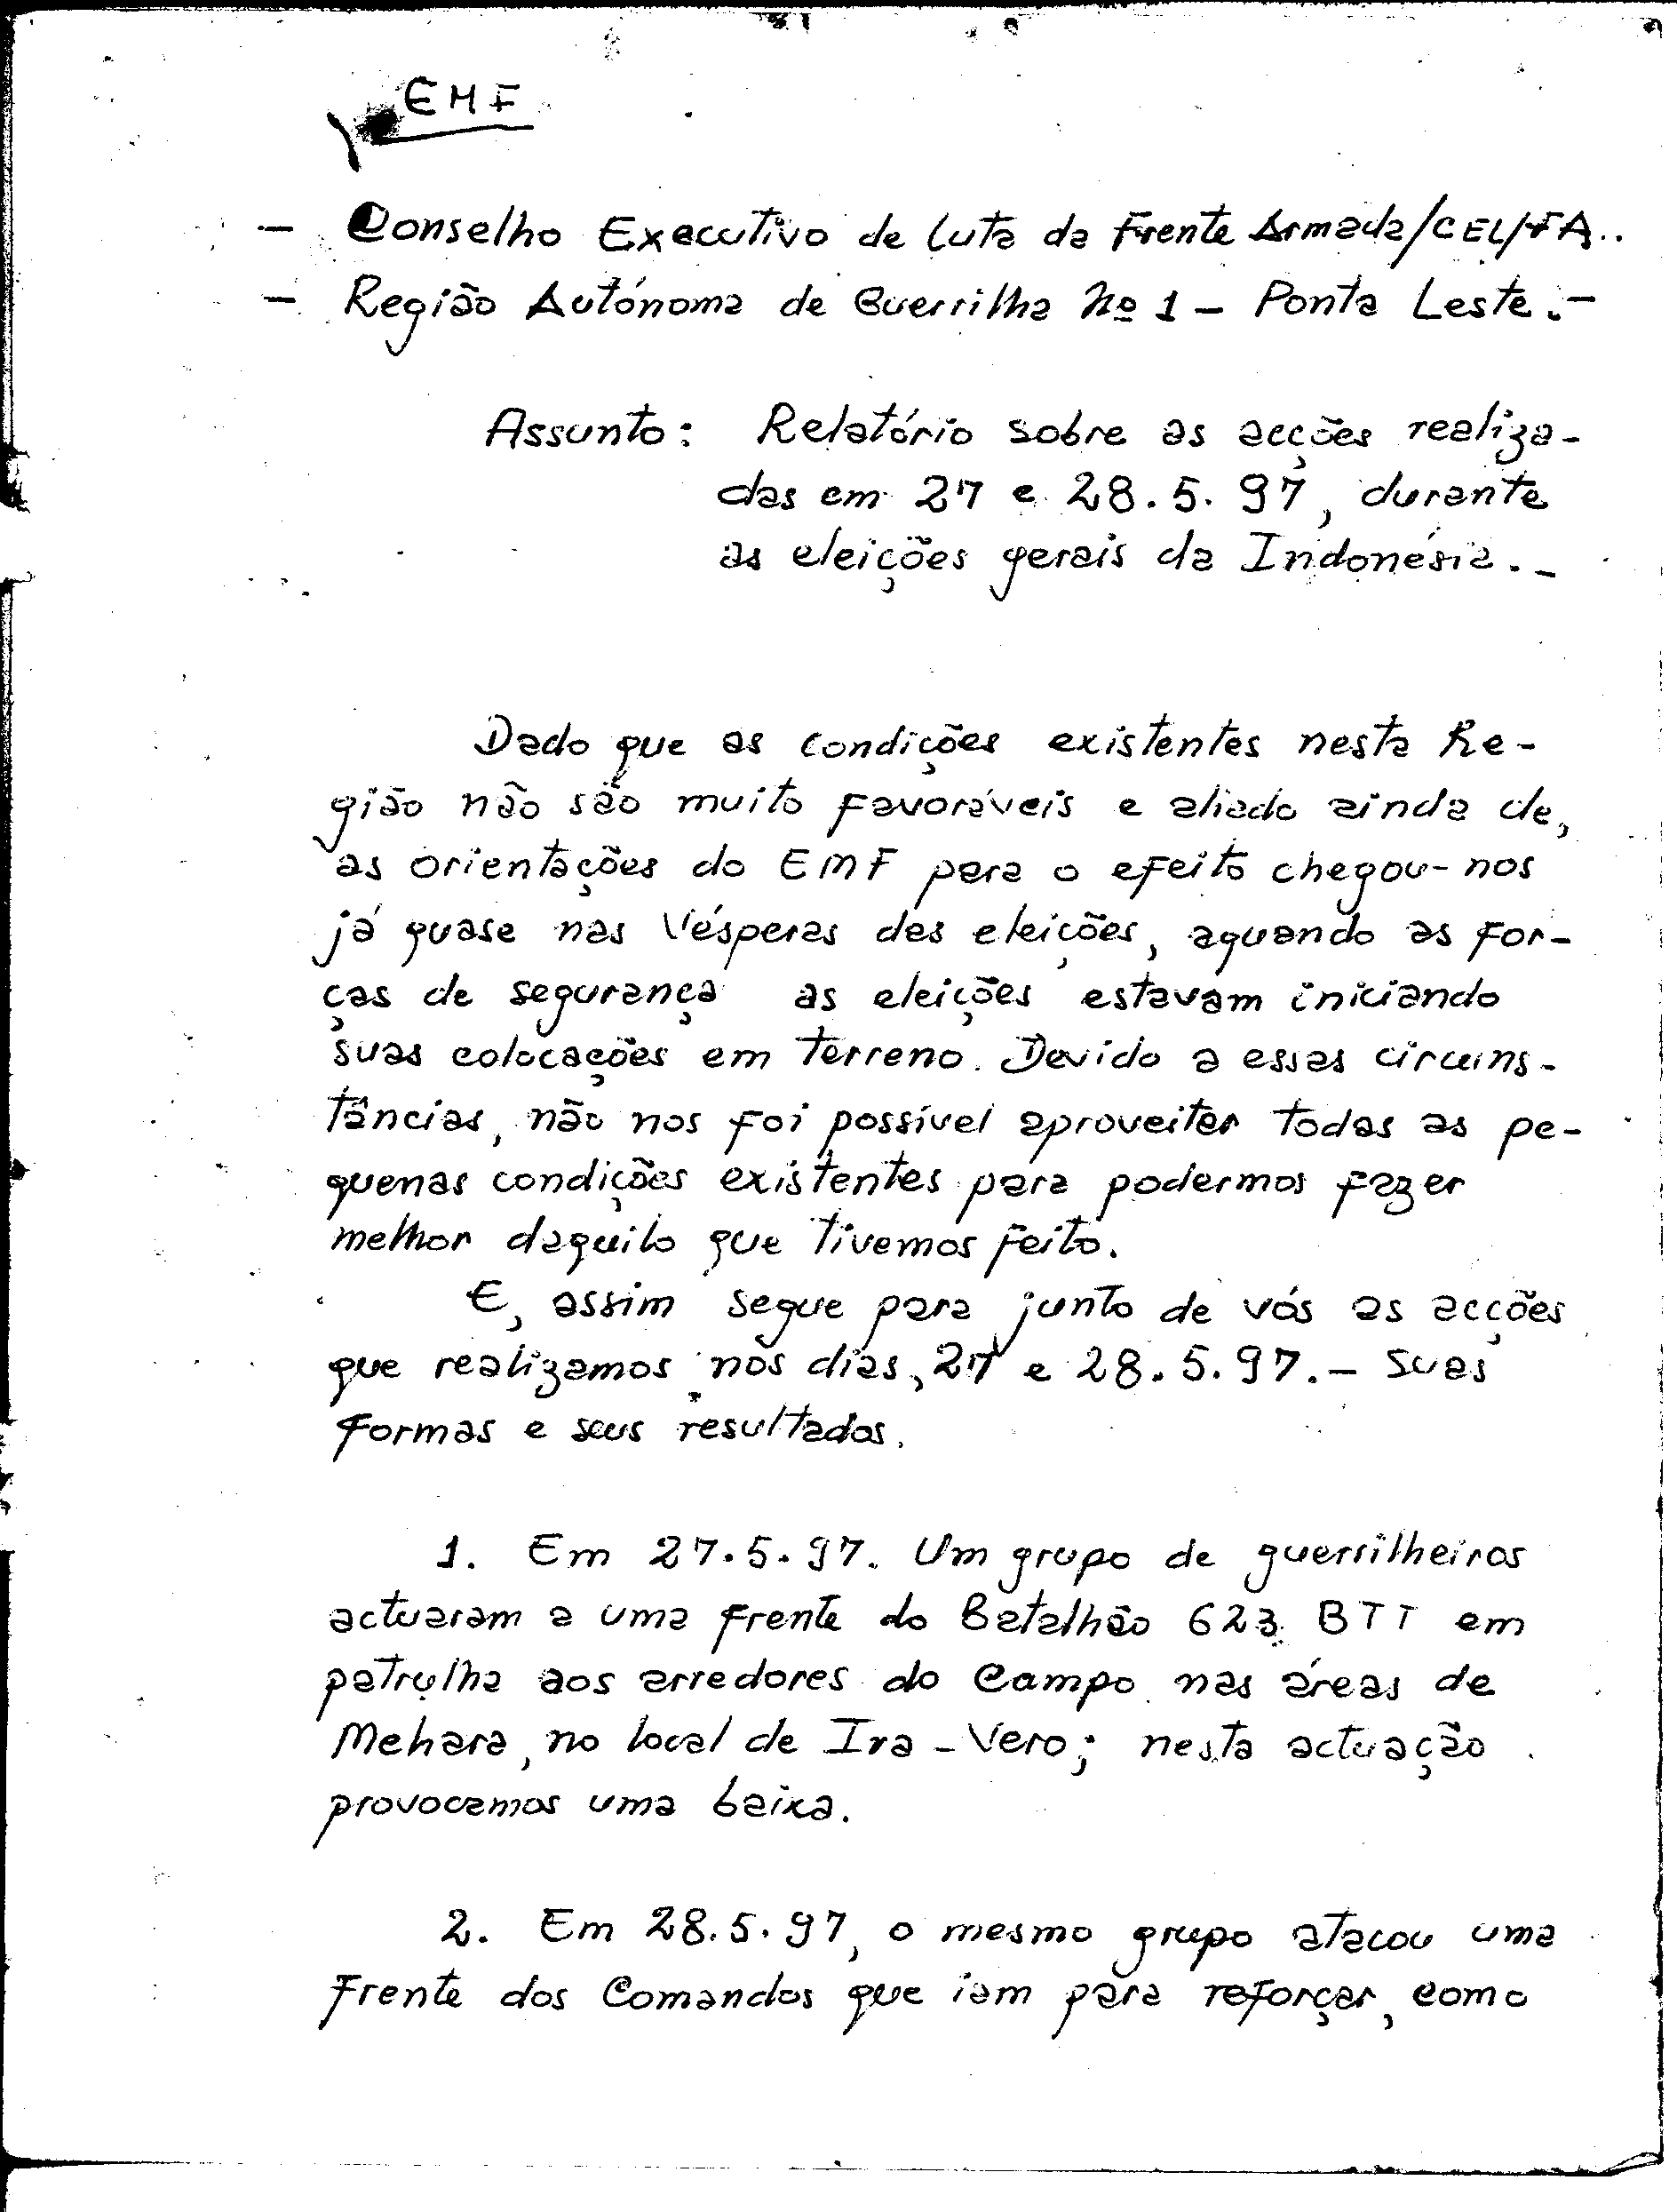 EMF
- Conselho Executivo de Luta da Frente Armada/CEL/FA..
- Região Autónoma de Guerrilha Nº 1 - Ponta Leste.-
Assunto: Relatório sobre as acções realiza-
das em 27 e 28.5.97, durante
as eleições gerais da Indonésia.-
Dado que as condições existentes nesta Re-
gião não são muito favoráveis e aliado ainda de,
as orientações do EMF para o efeito chegou-nos
já quase nas Vésperas das eleições, aquando as for-
ças de segurança as eleições estavam iniciando
suas colocações em terreno. Devido a essas circuns-
tâncias, não nos foi possível aproveitar todas as pe-
quenas condições existentes para podermos fazer
melhor daquilo que tivemos feito.
E, assim segue para junto de vós as acções
que realizamos nos dias, 27 e 28.5.97.- Suas
formas e seus resultados.
1. Em 27.5.97. Um grupo de guerrilheiros
actuaram a uma frente do Batalhão 623 BTT em
patrulha aos arredores do Campo nas áreas de
Mehara, no local de Ira-Vero; nesta actuação
provocamos uma baixa.
2. Em 28.5.97, o mesmo grupo atacou uma
frente dos Comandos que iam para reforçar, como